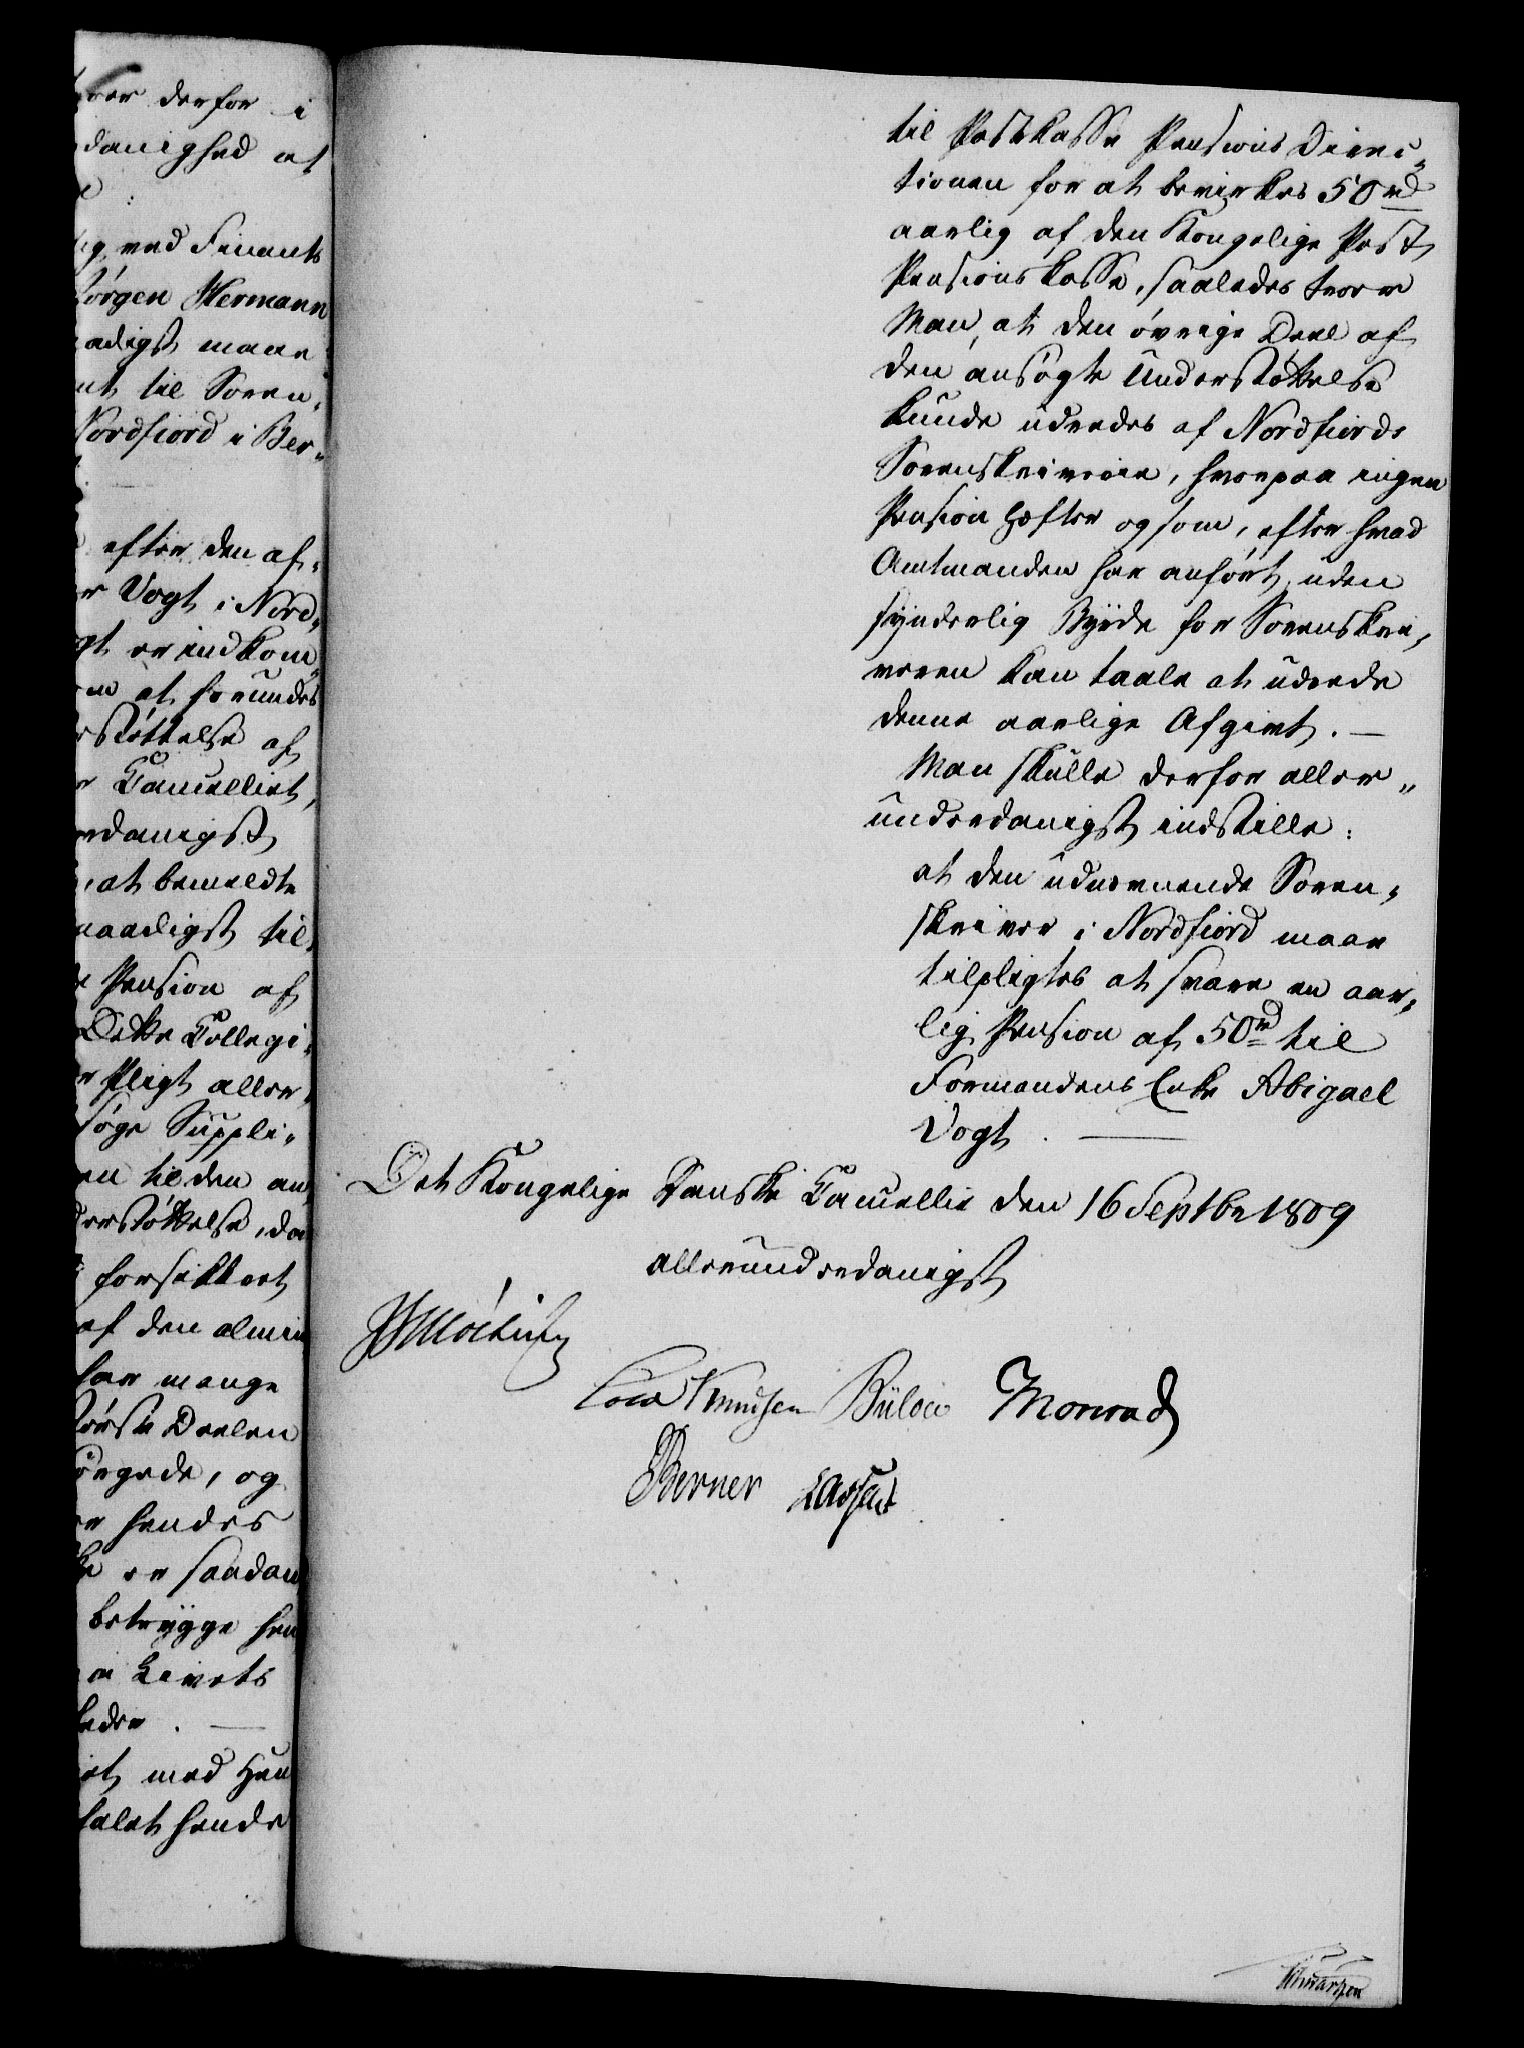 rer derfor i
danighed at
e :
ig, ved Finants
Jørgen Hermann
adigst maae
nt til Soren„
Nordfiord i Ber„
efter den af„
r Vogt i Nord„
gt er indkom„
m at forundes
rstøttelse af
r Cancelliet,
rdanigst
, at bemeldte
naadigst til„
e Pension af
Dette Collegi„
r Pligt aller„
søge Suppli„
en til den an„
derstøttelse, da
forsikkret
af den almin
har mange
største Deelen
sørgede, og
er hendes
ke er saadan
betrygge hen
en Livets
heder . —
et, med Hen
falet hende
til Postkasse Pensions Direc„
tionen for at bevirkes 50 rd
aarlig af den Kongelige Post
Pensions Kasse, saaledes troer
Man, at den øvrige Deel af
den ansøgte Understøttelse
kunde udredes af Nordfiords
Sorenskriverie, hvorpaa ingen
Pension hæfter og som, efter hvad
Amtmanden har anført, uden
synderlig Byrde for Sorenskri„
veren kan taale at udrede
denne aarlige Afgivt. —
Man skulle derfor aller„
underdanigst indstille:
at den udnævnende Soren„
skriver i Nordfiord maae
tilpligtes at svare en aar„
lig Pension af 50 rd til
Formandens Enke Abigael
Vogt . —
Det Kongelige Danske Cancellie den 16 Septbr 1809
allerunderdanigst
Møsting
Cold Knudsen Bülow Monrad
Berner Lassen